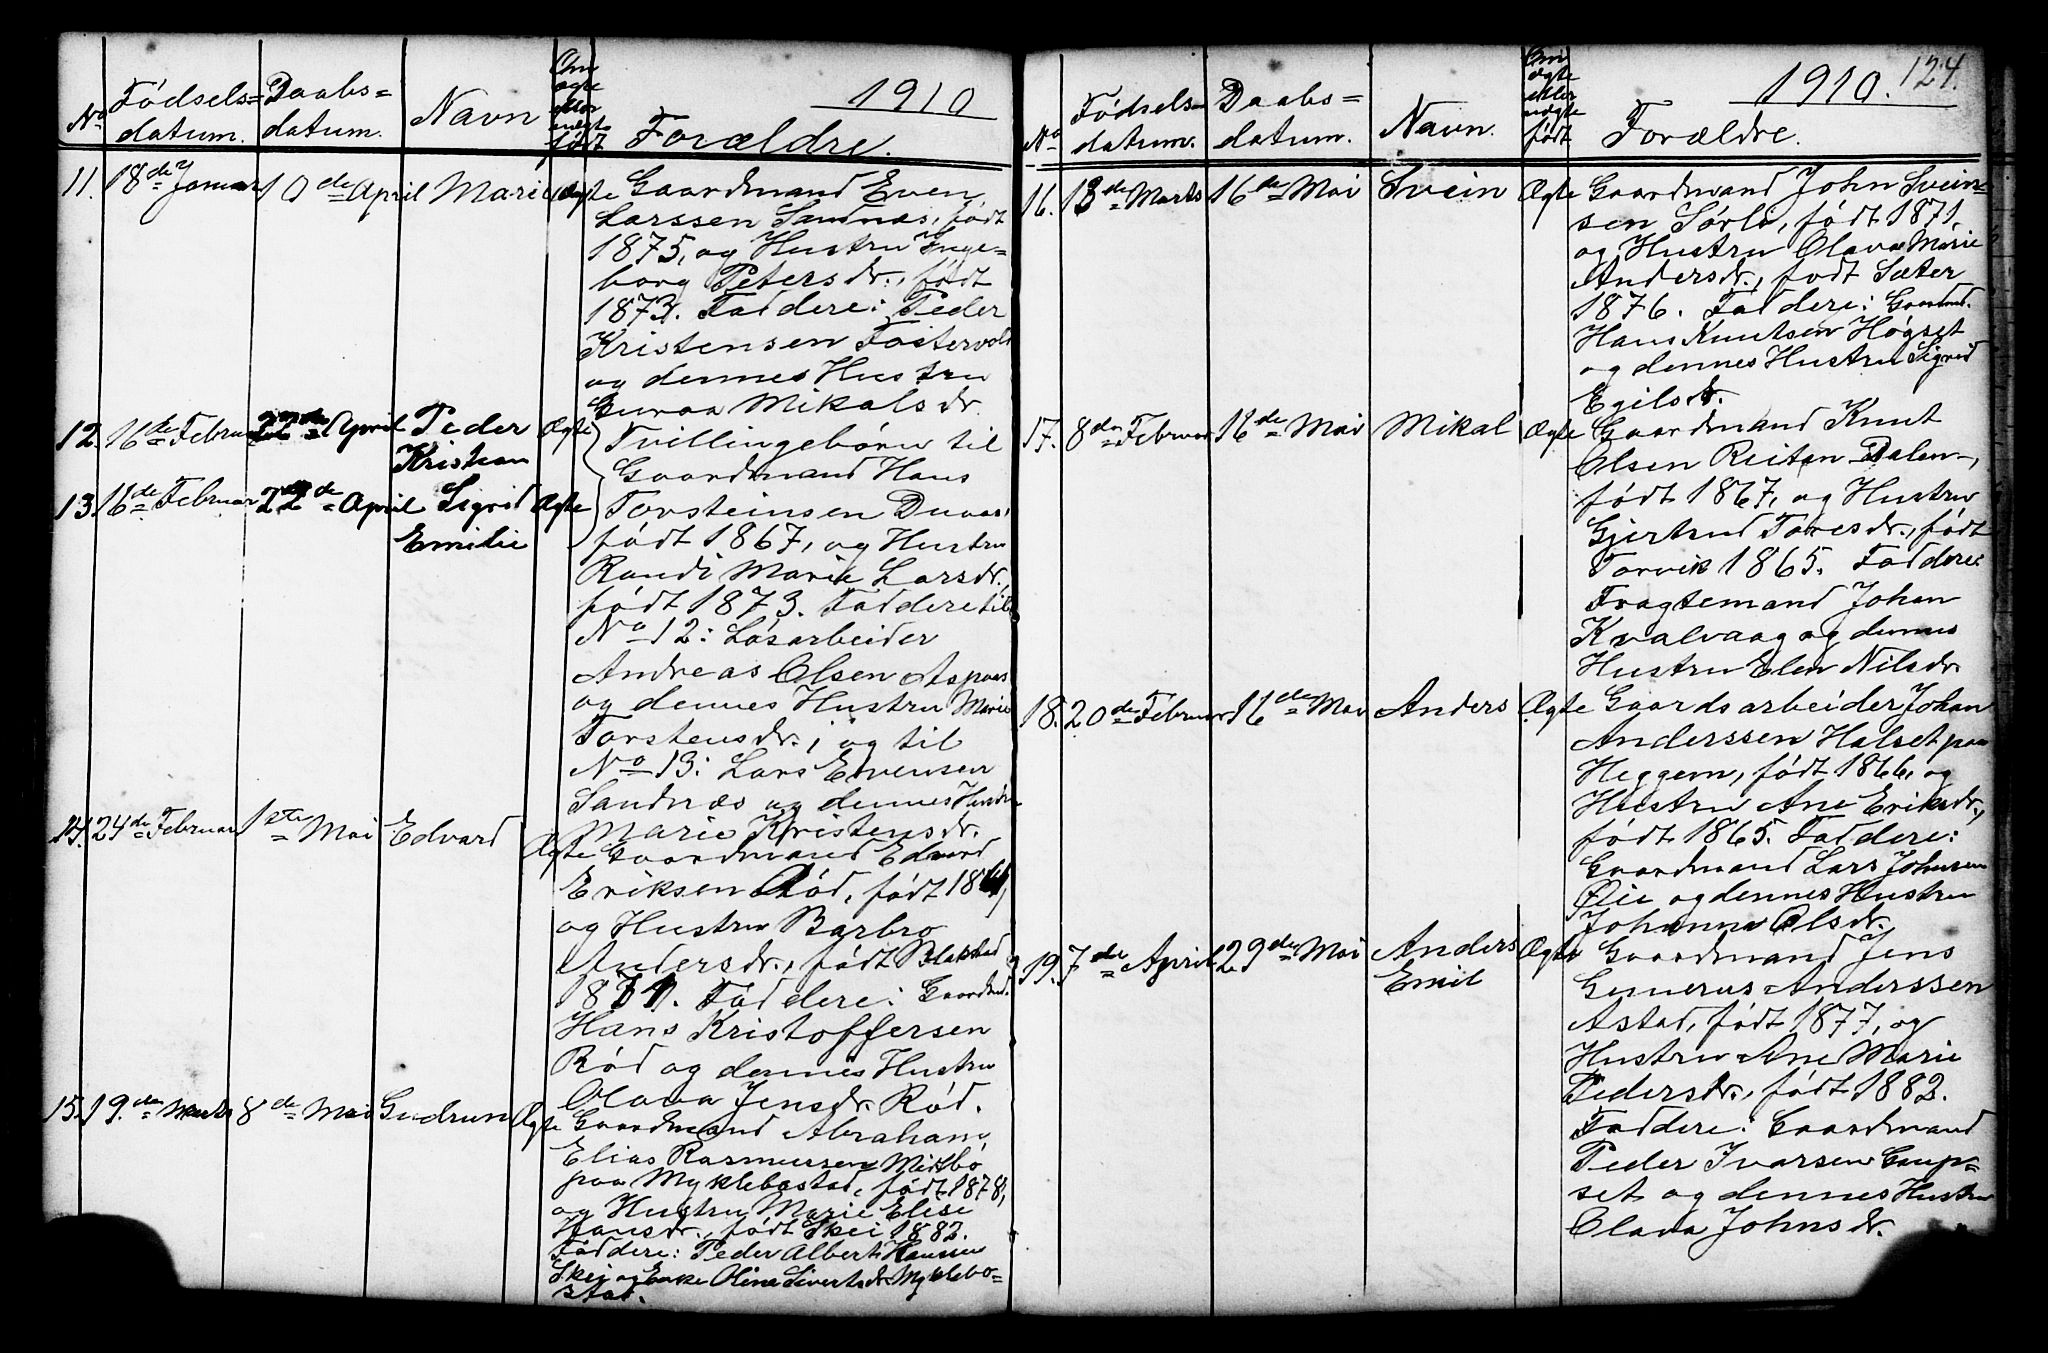 1910
No
Fødsels=
datum.
Daabs=
datum.
Navn
Om
ægte
eller
uægte
født
Forældre.
11. 18de Januar 10de April Marie Ægte Gaardmand Even
Larssen Sandnæs, født
1875, og Hustru Inge-
borg Petersdr., født
1873. Faddere: Peder
Kristensen Fostervold
og dennes Hustru
Guraa Mikalsdr.
12. 16de Februar April Peder Ægte Tvillingebørn til
Kristian Gaardmand Hans
13. 16de Februar 22de April Sigrid Ægte Torsteinsen
Emilie født 1867, og Hustru
Randi Marie Larsdr.,
født 1873. Faddere til
No 12: Løsarbeider
Andreas Olsen Aspaas
og dennes Hustru Marie
Torstensdr.; og til
No 13: Lars Evensen
Sandnæs og dennes Hustru
Marie Kristensdr.
14. 24de Februar 1ste Mai Edvard Ægte Gaardmand Edvard
Eriksen Rød, født
og Hustru Barbro
Andersdr., født Blakstad
Faddere: Gaardmd.
Hans Kristoffersen
Rød og dennes Hustru
Olava Jensdr. Rød.
15. 19.de Marts 8de Mai Gudrun Ægte Gaardmand Abraham
Elias Rasmussen Midtbø
paa Myklebostad, født 1878,
og Hustru Marie Elise
Hansdr., født Skei 1882.
Faddere: Peder Albert Hanssen
Skei og Enke Oline Sivertsdr. Myklebo-
stad.
124.
1910.
No
Fødsels-
datum.
Daabs=
datum.
Navn.
Om
ægte
eller
uægte
født
Forældre.
16. 13de Marts 16de Mai Svein Ægte Gaardmand John Svein-
sen Sørli, født 1871.
og Hustru Olava Marie
Andersdr., født Sæter
1876. Faddere: Gaardmd.
Hans Knutsen Høgset
og dennes Hustru Sigrid
Egilsdr.
17. 8de Februar 16de Mai Mikal Ægte Gaardmand Knut
Olsen Reiten Dalen,
født 1867, og Hustru
Gjertrud Toresdr., født
Torvik 1865. Faddere:
Fragtemand Johan
Kvalvaag og dennes
Hustru Elen Nilsdr.
18. 20de Februar 16de Mai Anders Ægte Gaardsarbeider Johan
Anderssen Halset paa
Heggem, født 1866, og
Hustru Ane Eriksdr.,
født 1865. Faddere:
Gaardmand Lars Johnsen
Øie og dennes Hustru
Johanna Olsdr.
19. 7de April 29de Mai Anders Ægte Gaardmand Jens
Emil Gunerus Anderssen
Astad, født 1877, og
Hustru Ane Marie
Pedersdr., født 1882.
Faddere: Gaardmand
Peder Ivarsen Gaup-
set og dennes Hustru
Olava Johnsdr.